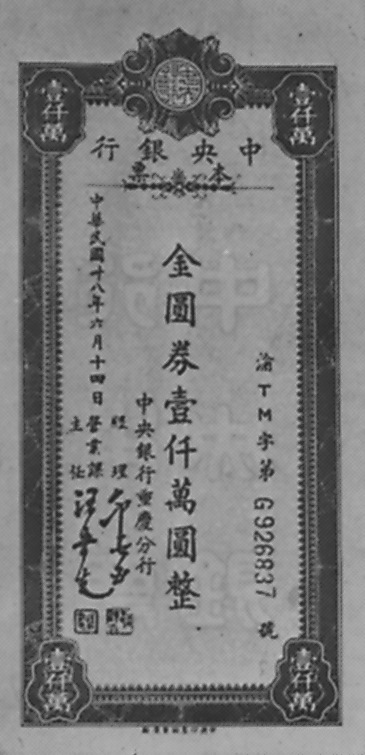 壹仟萬
壹仟萬
中央銀行
本票
渝TM字第G926837號
金圓券壹仟萬圓整
中央銀行重慶分行
經理
營業課
主任
中華民國卅八年六月十四日
壹仟萬
壹仟萬